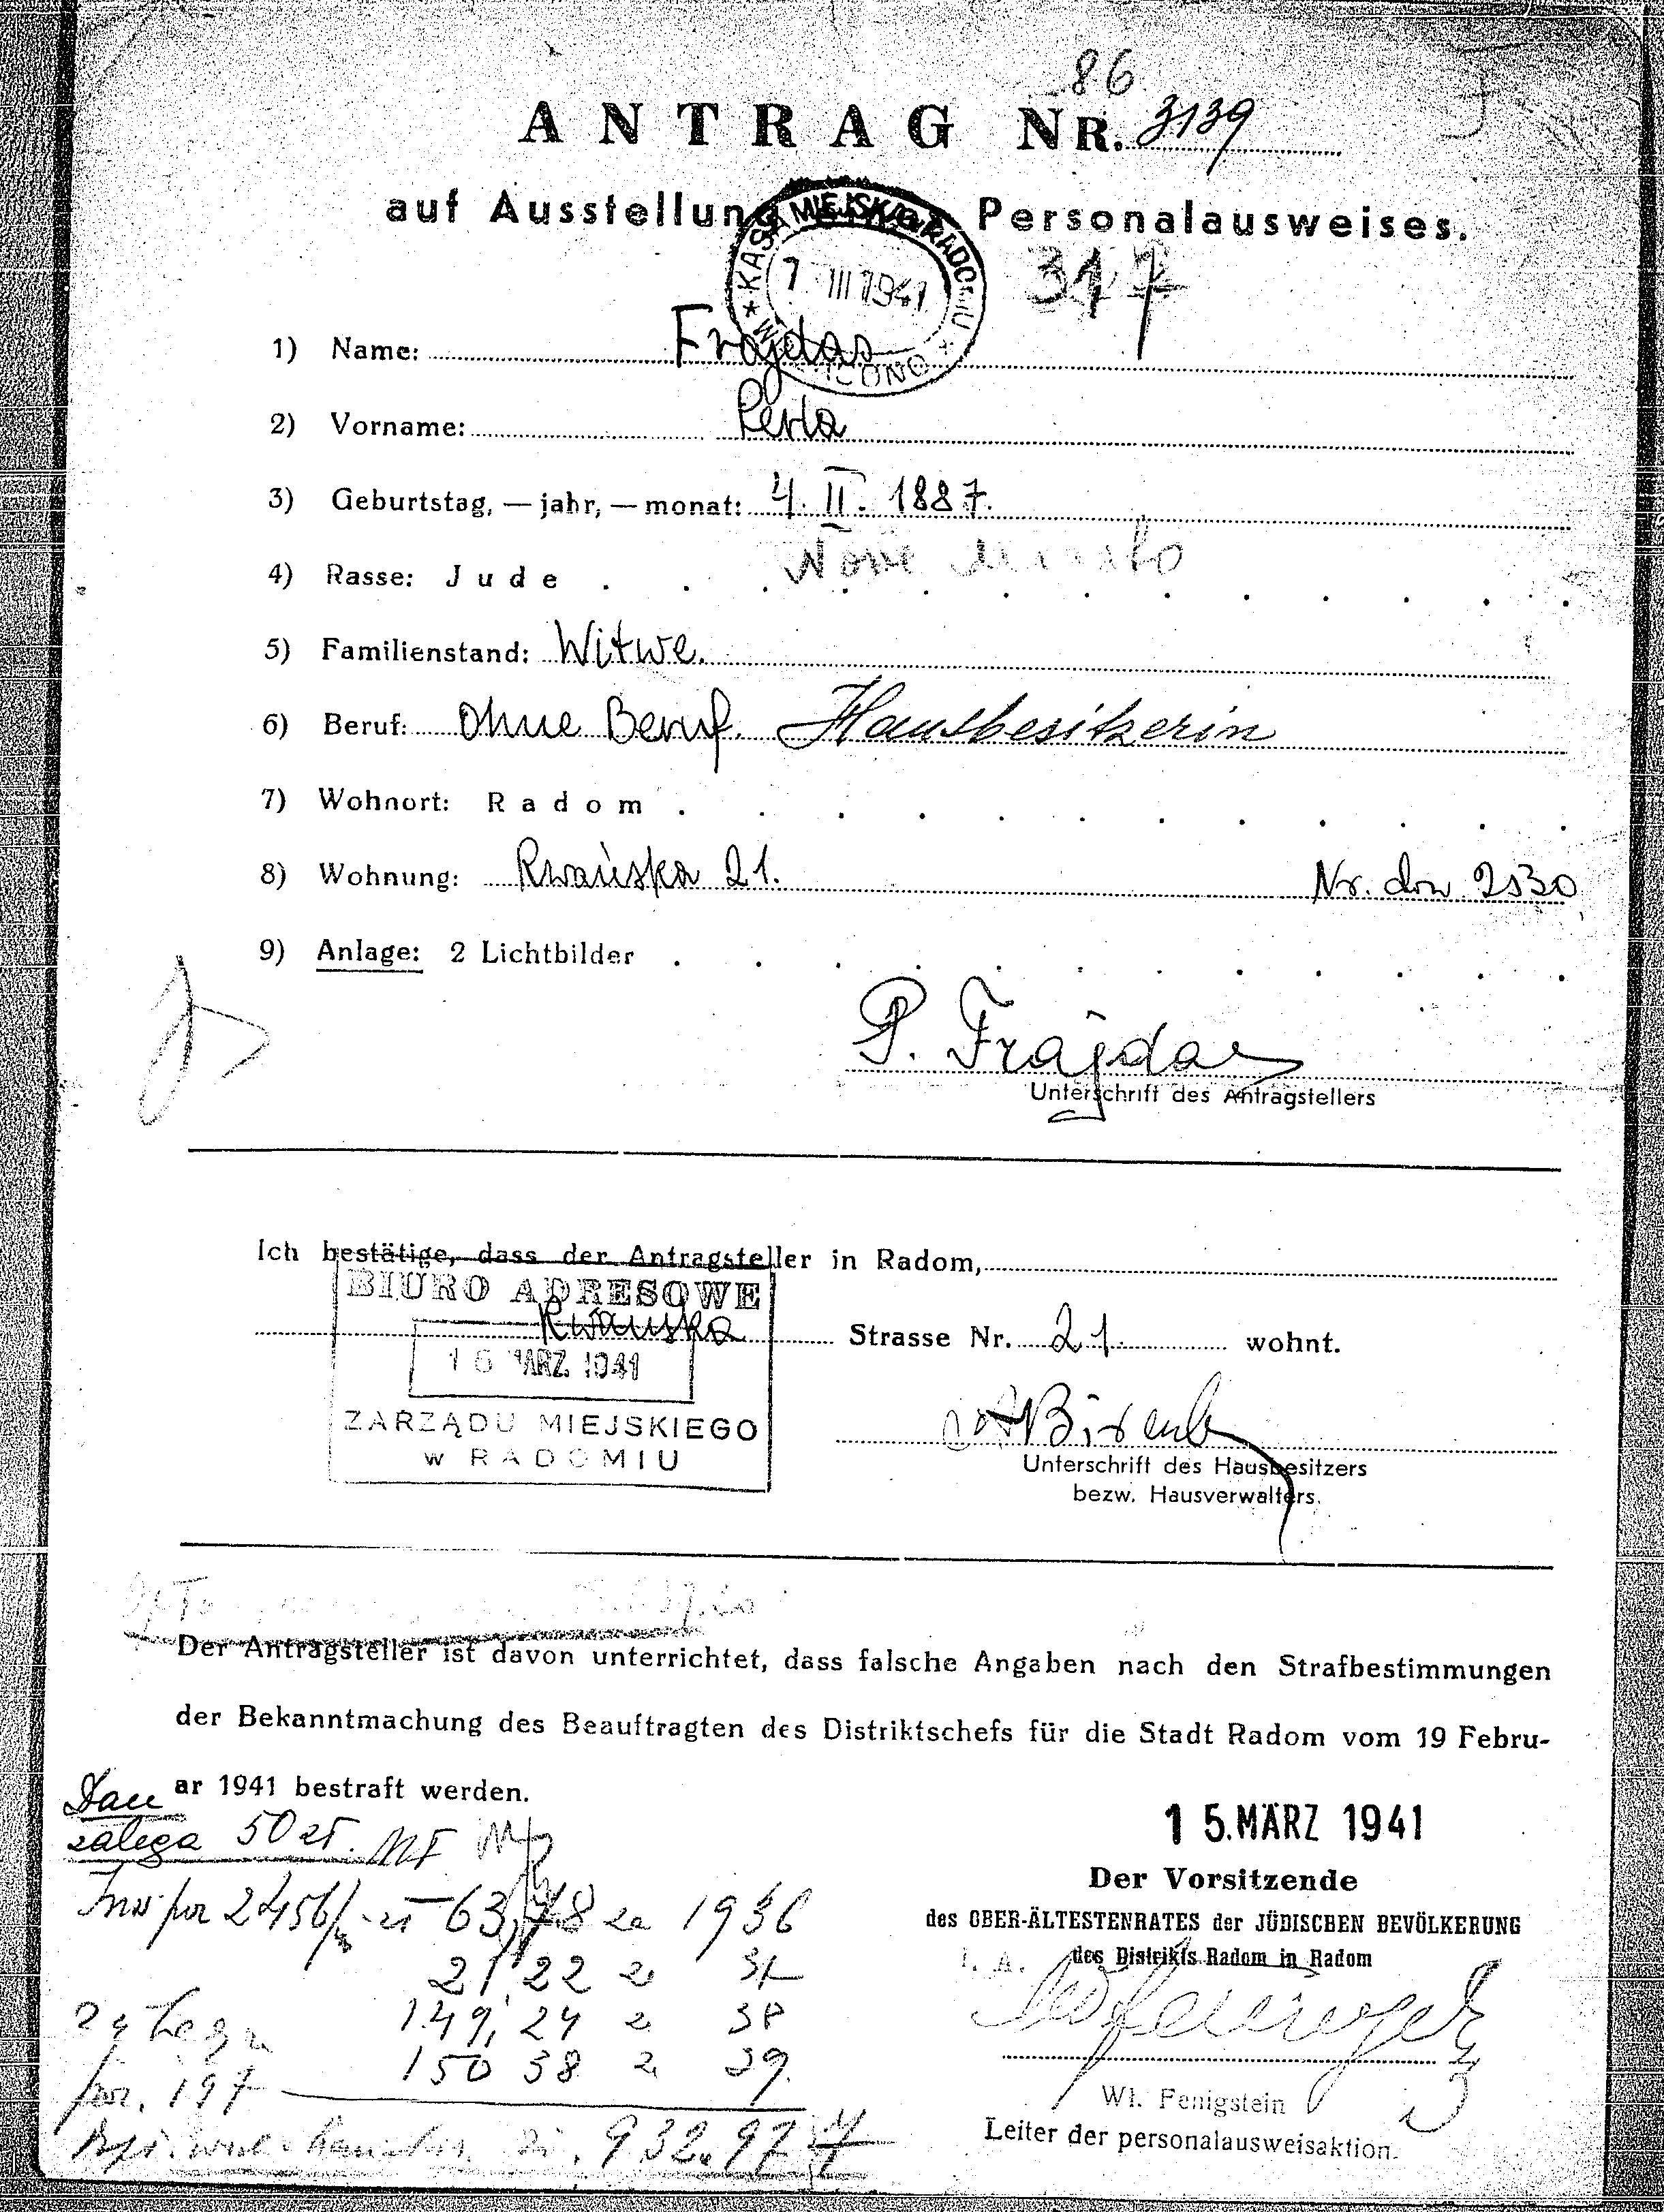 86
ANTRAG NR. 3139
auf Ausstellung Personalausweises.
KASA MIEJSKA w RADOMIU
7 III 1941
317
1) Name: Frajdas
2) Vorname: Perla
3) Geburtstag, — jahr, — monat: 4. II. 1887.
Nowe Miasto
4) Rasse: Jude
5) Familienstand: Witwe.
6) Beruf: ohne Beruf. Hausbesitzerin
7) Wohnort: Radom
8) Wohnung: Rwańska 21. Nr. dow 2530
9) Anlage: 2 Lichtbilder
P. Frajdas
Unterschrift des Antragstellers
Ich bestätige, dass der Antragsteller in Radom,
BIURO ADRESOWE
Rwańska Strasse Nr. 21. wohnt.
16 MÄRZ 1941
ZARZĄDU MIEJSKIEGO
w RADOMIU
Unterschrift des Hausbesitzers
bezw. Hausverwalters.
Der Antragsteller ist davon unterrichtet, dass falsche Angaben nach den Strafbestimmungen
der Bekanntmachung des Beauftragten des Distriktschefs für die Stadt Radom vom 19 Febru-
ar 1941 bestraft werden.
15. MÄRZ 1941
zalega 50 zł.
Der Vorsitzende
63,78 za 1936
des OBER-ÄLTESTENRATES der JÜDISCHEN BEVÖLKERUNG
I. A. des Distrikts Radom in Radom
21,22
149,24 38
150 38 39.
por. 197
Wl. Fenigstein
932.97
Leiter der personalausweisaktion.